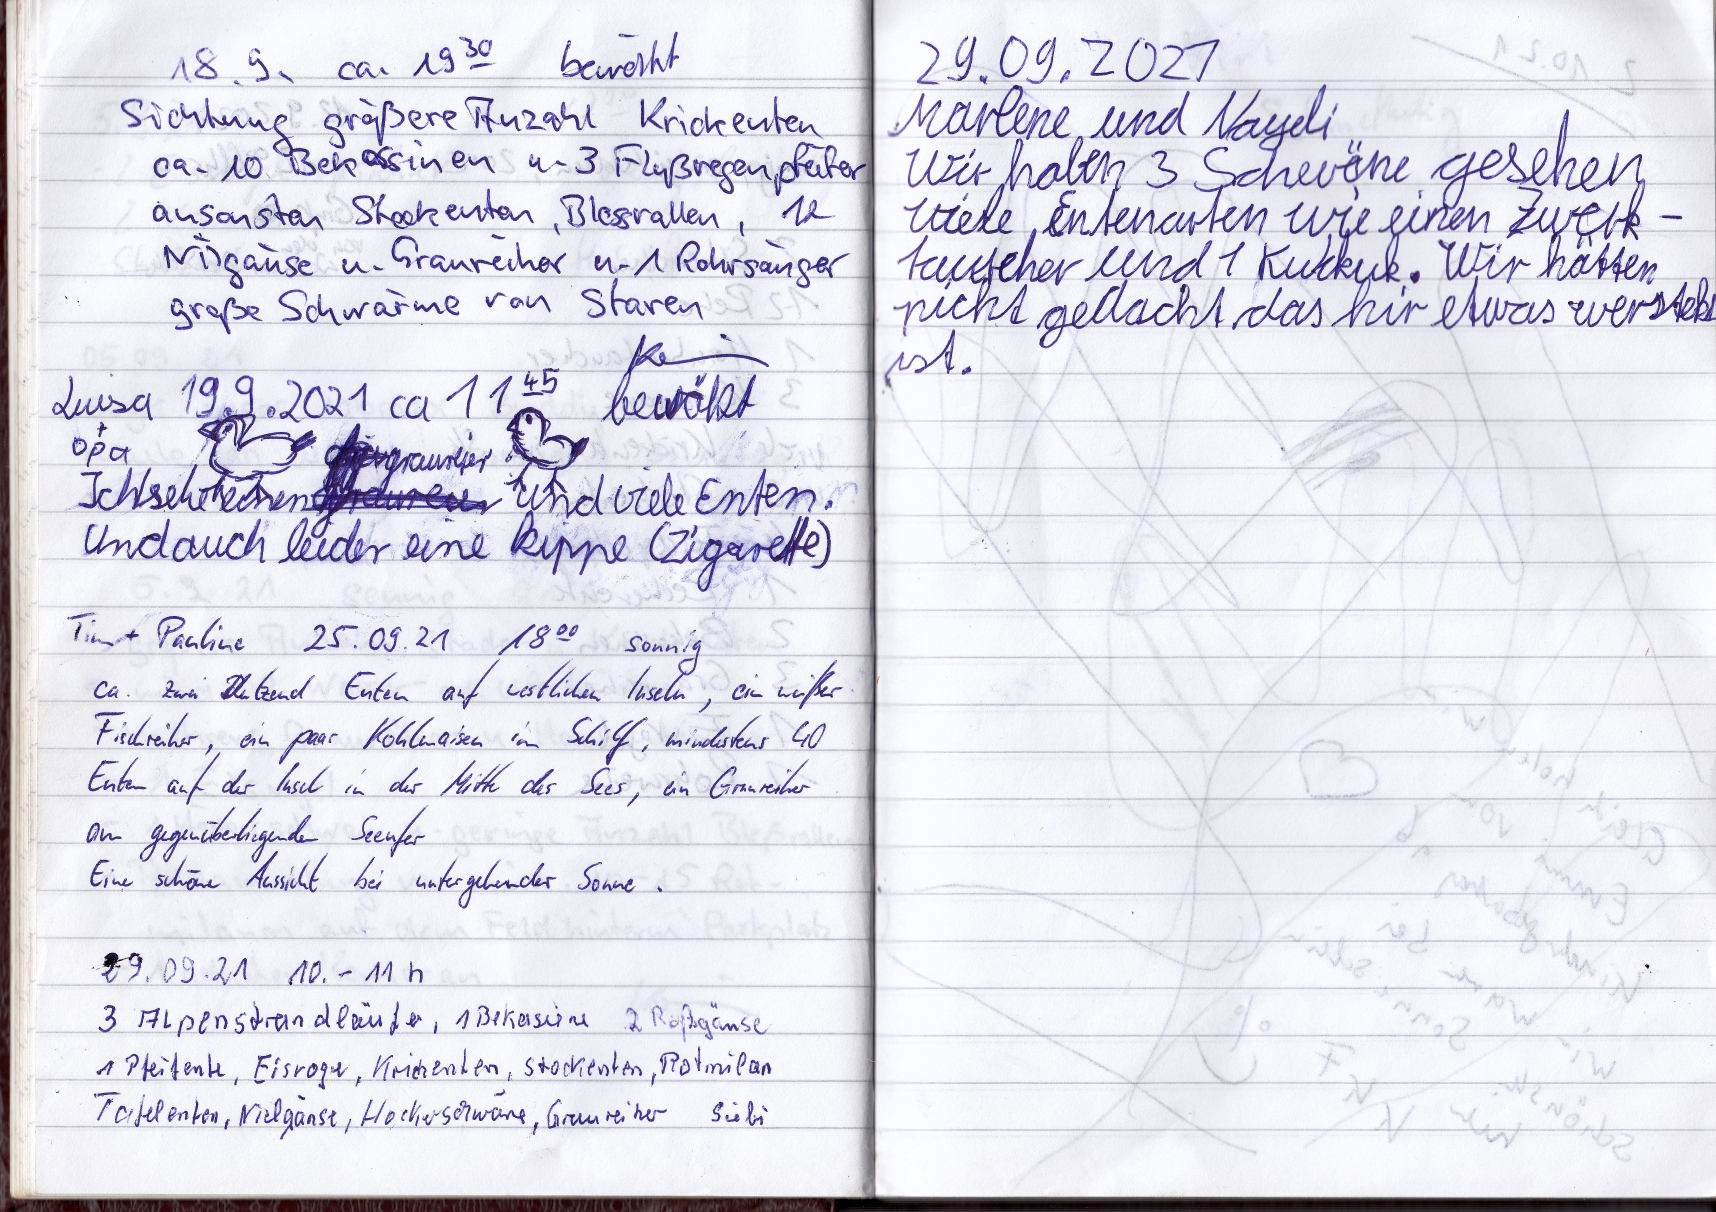 18.9. ca. 19³⁰ bewölkt
Sichtung größere Anzahl Krickenten
ca. 10 Bekassinen u. 3 Flußregenpfeifer
ansonsten Stockenten, Blessrallen, 12
Nilgänse u. Graureiher u. 1 Rohrsänger
große Schwärme von Staren
Luisa 19.9.2021 ca 11⁴⁵ bewölkt
+
Opa
graureier
Ich sehe einen und viele Enten.
Und auch leider eine kippe (Zigarette)
Tim + Pauline 25.09.21 18⁰⁰ sonnig
ca. zwei Dutzend Enten auf westlichen Inseln, ein weißer
Fischreiher, ein paar Kohlmaisen im Schilf, mindestens 40
Enten auf der Insel in der Mitte des Sees, ein Graureiher
am gegenüberliegenden Seeufer
Eine schöne Aussicht bei untergehender Sonne.
29.09.21 10.-11 h
3 Alpenstrandläufer, 1 Bekasine 2 Roßtgänse
1 Pfeifente, Eisvogel, Krickenten, Stockenten, Rotmilan
Tafelenten, Nielgänse, Höckerschwäne, Graureiher
29.09.2021
Marlene und Nayeli
Wir haben 3 Schwäne gesehen
viele Entenarten wie einen Zwerk-
taucher und 1 Kukkuk. Wir hätten
nicht gedacht das hir etwas versteckt
ist.